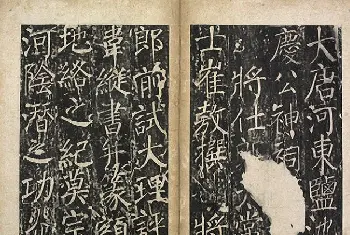 大唐河東鹽池
慶公神祠
將仕常
士崔敖撰 將
郎前試大理評
韋縱書并篆額
地絡之紀莫宗
河陰潛之功